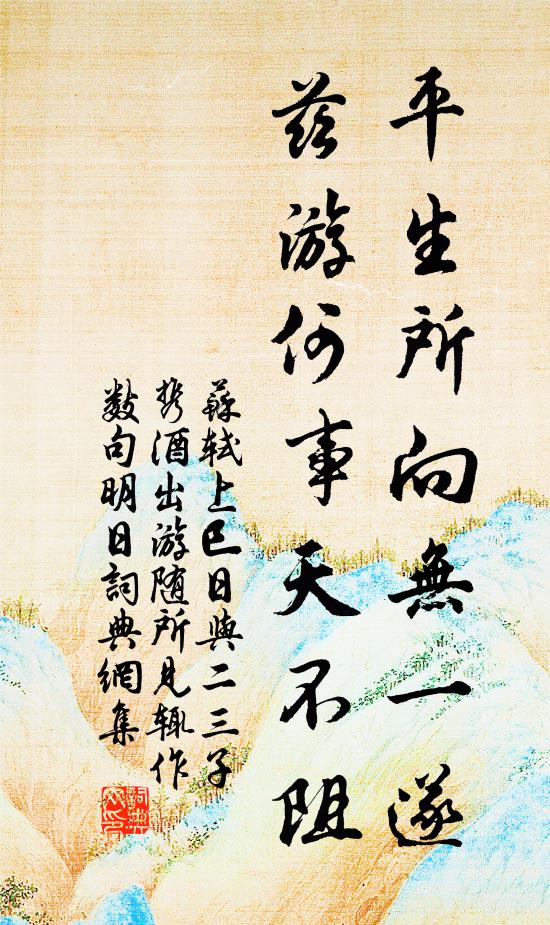 平生所向無一遂
茲游何事天不阻
蘇軾上巳日與二三子
攜酒出游随所見輒作
數句明日詞典網集